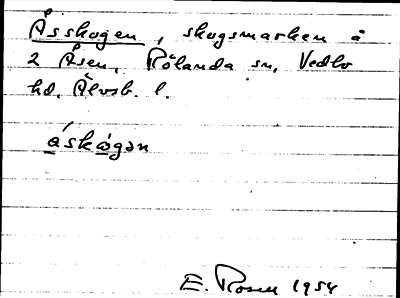 Åsskogen, skogsmarken å
2 Åsen, Rölanda sn, Vedbo
hd, Älvsb. l.
áskògən
E. Rosen 1954